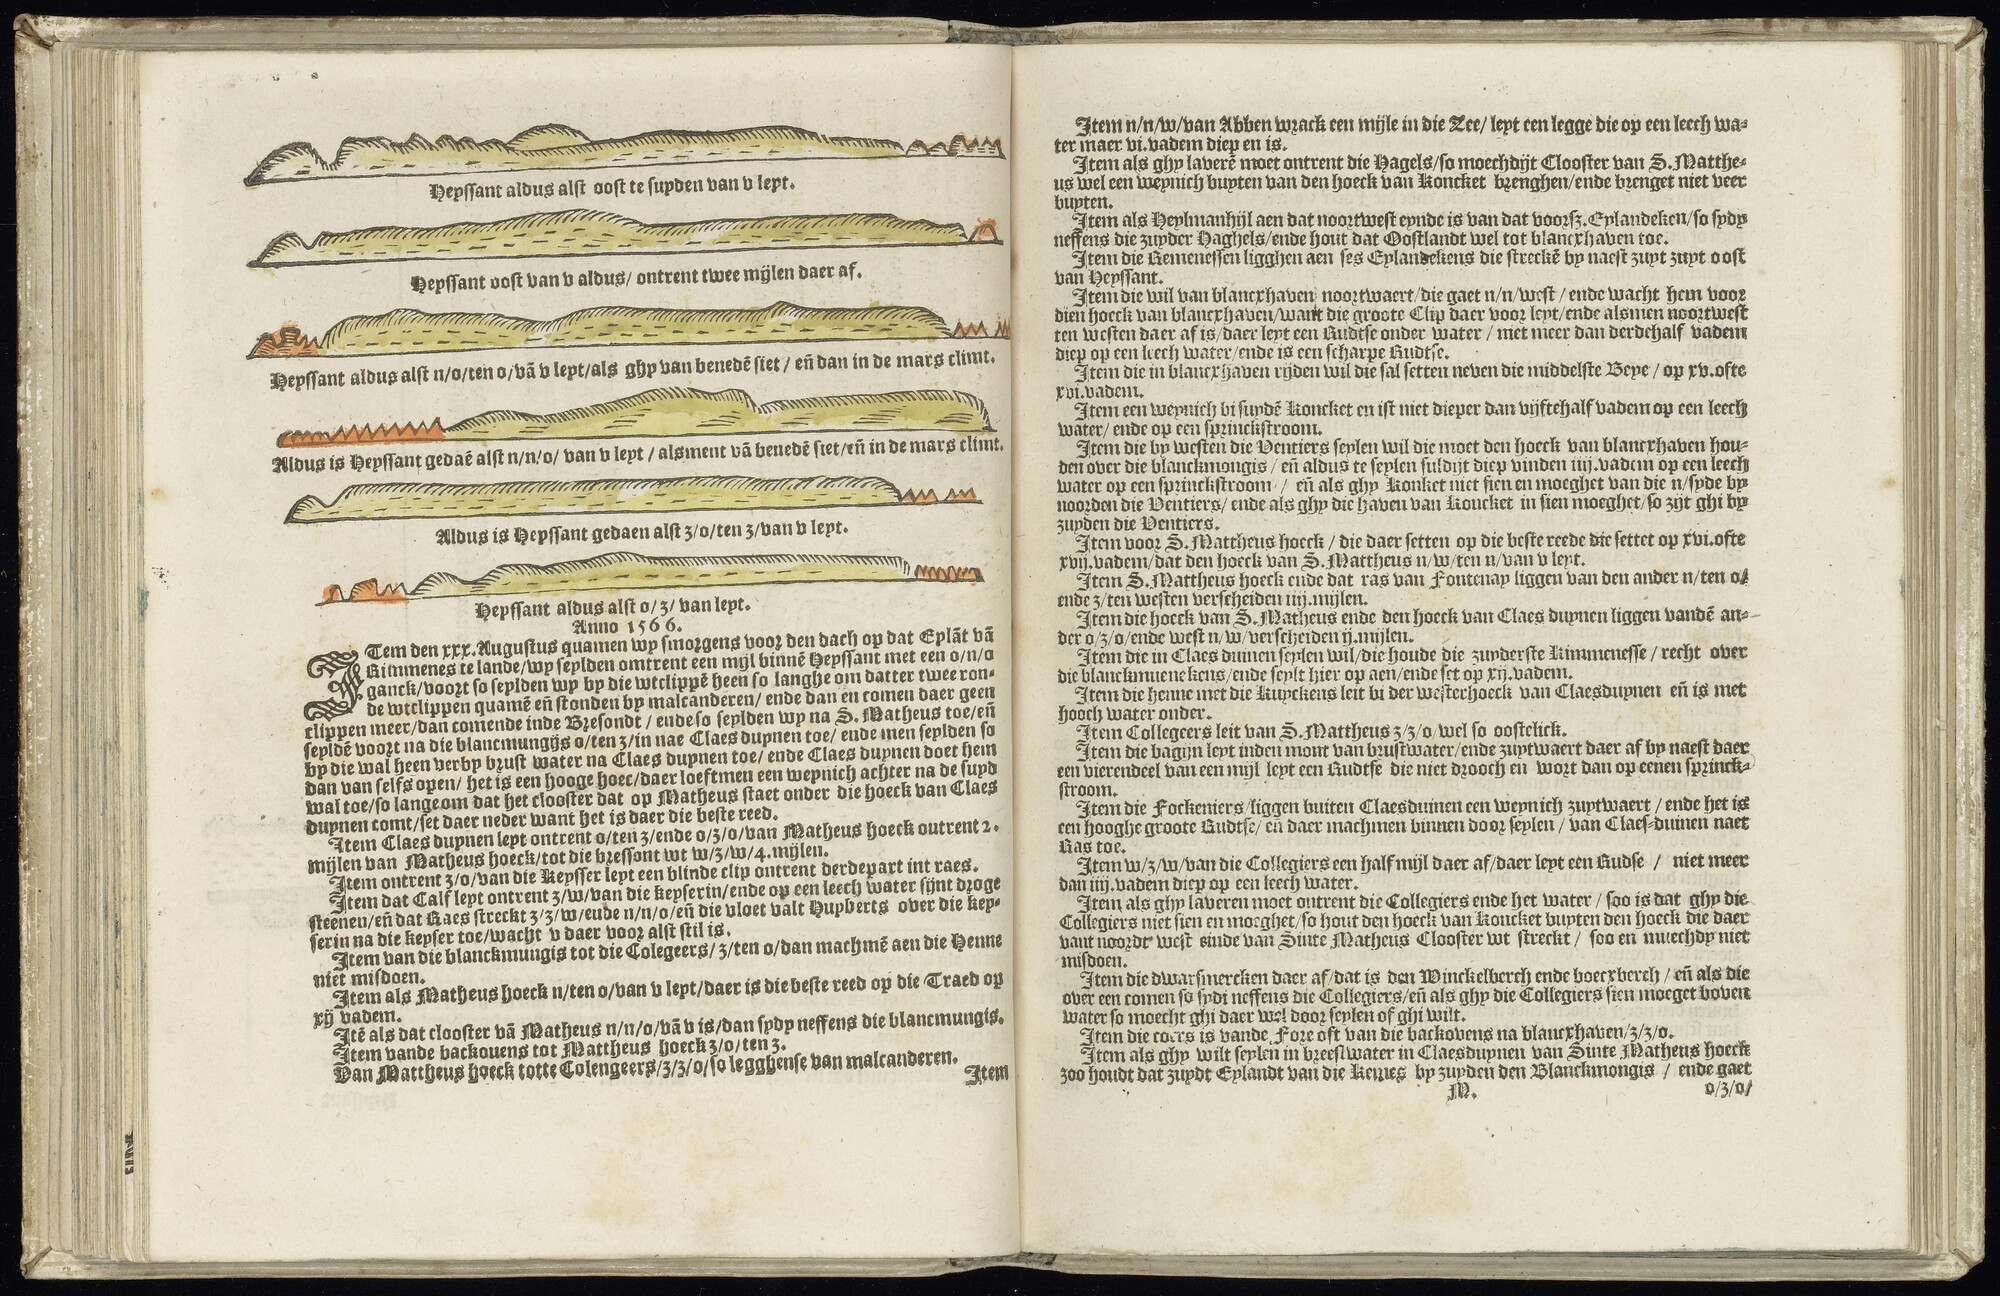 Heyssant aldus alst oost te suyden van v leyt.
Heyssant oost van v aldus/ ontrent twee mijlen daer af.
Heyssant aldus alst n/o/ten o/vā v leyt/als ghy van benedē siet/ eñ dan in de mars climt.
Aldus is Heyssant gedaē alst n/n/o/ van v leyt / alsment vā benedē siet/eñ in de mars climt.
Aldus is Heyssant gedaen alst z/o/ten z/van v leyt.
Heyssant aldus alst o/z/ van leyt.
Anno 1566.
ITem den xxx. Augustus quamen wy smorgens voor den dach op dat Eylāt vā
Gidmenes te lande/wy seylden omtrent een mijl binnē Heyssant met een o/n/o
ganck/voort so seylden wy by die wtclippē heen so langhe om datter twee ron-
de wtclippen quamē eñ stonden by malcanderen/ ende dan en comen daer geen
clippen meer/dan comende inde Bresondt / ende so seylden wy na S. Matheus toe/eñ
seyldē voort na die blancmungijs o/ten z/in nae Claes duynen toe/ ende men seylden so
by die wal heen verby brust water na Claes duynen toe/ ende Claes duynen doet hem
dan van selfs open/ het is een hooge hoec/daer loeftmen een weynich achter na de suyd
wal toe/so lange om dat het clooster dat op Matheus staet onder die hoeck van Claes
duynen comt/set daer neder want het is daer die beste reed.
Item Claes duynen leyt ontrent o/ten z/ende o/z/o/van Matheus hoeck outrent 2.
mijlen van Matheus hoeck/tot die bressont wt w/z/w/4.mijlen.
Item ontrent z/o/van die Keysser leyt een blinde clip ontrent derdepart int raes.
Item dat Calf leyt ontrent z/w/van die keyserin/ende op een leech water sijnt droge
steenen/eñ dat Raes streckt z/z/w/ende n/n/o/eñ die vloet valt Huyberts over die key-
serin na die keyser toe/wacht v daer voor alst stil is.
Item van die blanckmungis tot die Colegeers/z/ten o/dan machmē aen die Henne
niet misdoen.
Item als Matheus hoeck n/ten o/van v leyt/daer is die beste reed op die Traed op
xij vadem.
Itē als dat clooster vā Matheus n/n/o/vā v is/dan sydy neffens die blancmungis.
Item vande backouens tot Mattheus hoeck z/o/ten z.
Van Mattheus hoeck totte Colengeers/z/z/o/so legghense van malcanderen.
Item
Item n/n/w/van Abben wrack een mijle in die Zee/ leyt een legge die op een leech wa-
ter maer vi.vadem diep en is.
Item als ghy laverē moet ontrent die Hagels/so moechdijt Clooster van S. Matthe-
us wel een weynich buyten van den hoeck van Koncket brenghen/ende brenget niet veer
buyten.
Item als Heylmanhijl aen dat noortwest eynde is van dat voorsz. Eylandeken/so sydy
neffens die zuyder Haghels/ende hout dat Oostlandt wel tot blancxhaven toe.
Item die Remenessen ligghen aen ses Eylandekens die streckē by naest zuyt zuyt oost
van Heyssant.
Item die wil van blancxhaven noortwaert/die gaet n/n/west / ende wacht hem voor
dien hoeck van blancxhaven/want die groote Clip daer voor leyt/ende alsmen noortwest
ten westen daer af is/daer leyt een Rudtse onder water / niet meer dan derdehalf vadem
diep op een leech water/ende is een scharpe Rudtse.
Item die in blancxhaven rijden wil die sal setten neven die middelste Beye / op xv.ofte
xvi.vadem.
Item een weynich bi suydē Koncket en ist niet dieper dan vijftehalf vadem op een leech
water/ ende op een sprinckstroom.
Item die by westen die Ventiers seylen wil die moet den hoeck van blancxhaven hou-
den over die blanckmongis / eñ aldus te seylen suldijt diep vinden iiij.vadem op een leech
water op een sprinckstroom / eñ als ghy Konket niet sien en moeghet van die n/syde by
noorden die Ventiers/ ende als ghy die haven van Koncket in sien moeghet/so zijt ghi by
zuyden die Ventiers.
Item voor S. Mattheus hoeck / die daer setten op die beste reede die settet op xvi.ofte
xvij.vadem/dat den hoeck van S. Mattheus n/w/ten n/van v leyt.
Item S. Mattheus hoeck ende dat ras van Fontenay liggen van den ander n/ten o/
ende z/ten westen verscheiden iiij.mijlen.
Item die hoeck van S. Matheus ende den hoeck van Claes duynen liggen vandē an-
der o/z/o/ende west n/w/verscheiden ij.mijlen.
Item die in Claes duinen seylen wil/die houde die zuyderste Kimmenesse / recht over
die blanckmuenekens/ende seylt hier op aen/ende set op xij.vadem.
Item die henne met die Kuyckens leit bi der westerhoeck van Claesduynen eñ is met
hooch water onder.
Item Collegeers leit van S. Mattheus z/z/o/wel so oostelick.
Item die bagijn leyt inden mont van brustwater/ende zuytwaert daer af by naest daer
een vierendeel van een mijl leyt een Rudtse die niet drooch en wort dan op eenen sprinck-
stroom.
Item die Fockeniers/liggen buiten Claesduinen een weynich zuytwaert / ende het is
een hooghe groote Rudtse/ eñ daer machmen binnen door seylen / van Claes-duinen naet
Ras toe.
Item w/z/w/van die Collegiers een half mijl daer af/daer leyt een Rudse / niet meer
dan iiij.vadem diep op een leech water.
Item als ghy laveren moet ontrent die Collegiers ende het water / soo is dat ghy die
Collegiers niet sien en moeghet/so hout den hoeck van Koncket buyten den hoeck die daer
vant noordt west einde van Sinte Matheus Clooster wt streckt / soo en muechdy niet
misdoen.
Item die dwarsmercken daer af/dat is den Winckelberch ende boecxberch / eñ als die
over een comen so sydi neffens die Collegiers/eñ als ghy die Collegiers sien moeget boven
water so moecht ghi daer wel door seylen of ghi wilt.
Item die coers is vande Fore oft van die backovens na blancxhaven/z/z/o.
Item als ghy wilt seylen in breestwater in Claesduynen van Sinte Matheus hoeck
zoo houdt dat zuydt Eylandt van die Kemes by zuyden den Blanckmongis / ende gaet
M.
o/z/o/